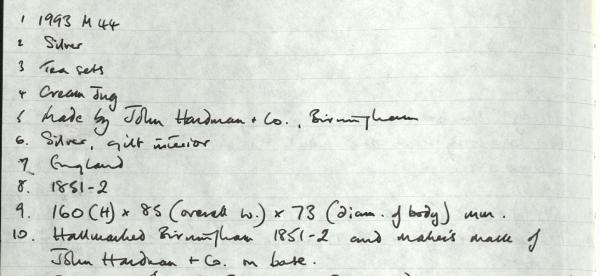 1 1993 M 44
2 Silver
3 Tea sets
4 Cream Jug
5 Made by John Hardman + Co., Birmingham
6. Silver, gilt interior
7 England
8. 1851-2
9. 160 (H) x 85 (overall w.) x 73 (diam. of body) mm.
10. Hallmarked Birmingham 1851-2 and maker's mark of
John Hardman + Co. on base.